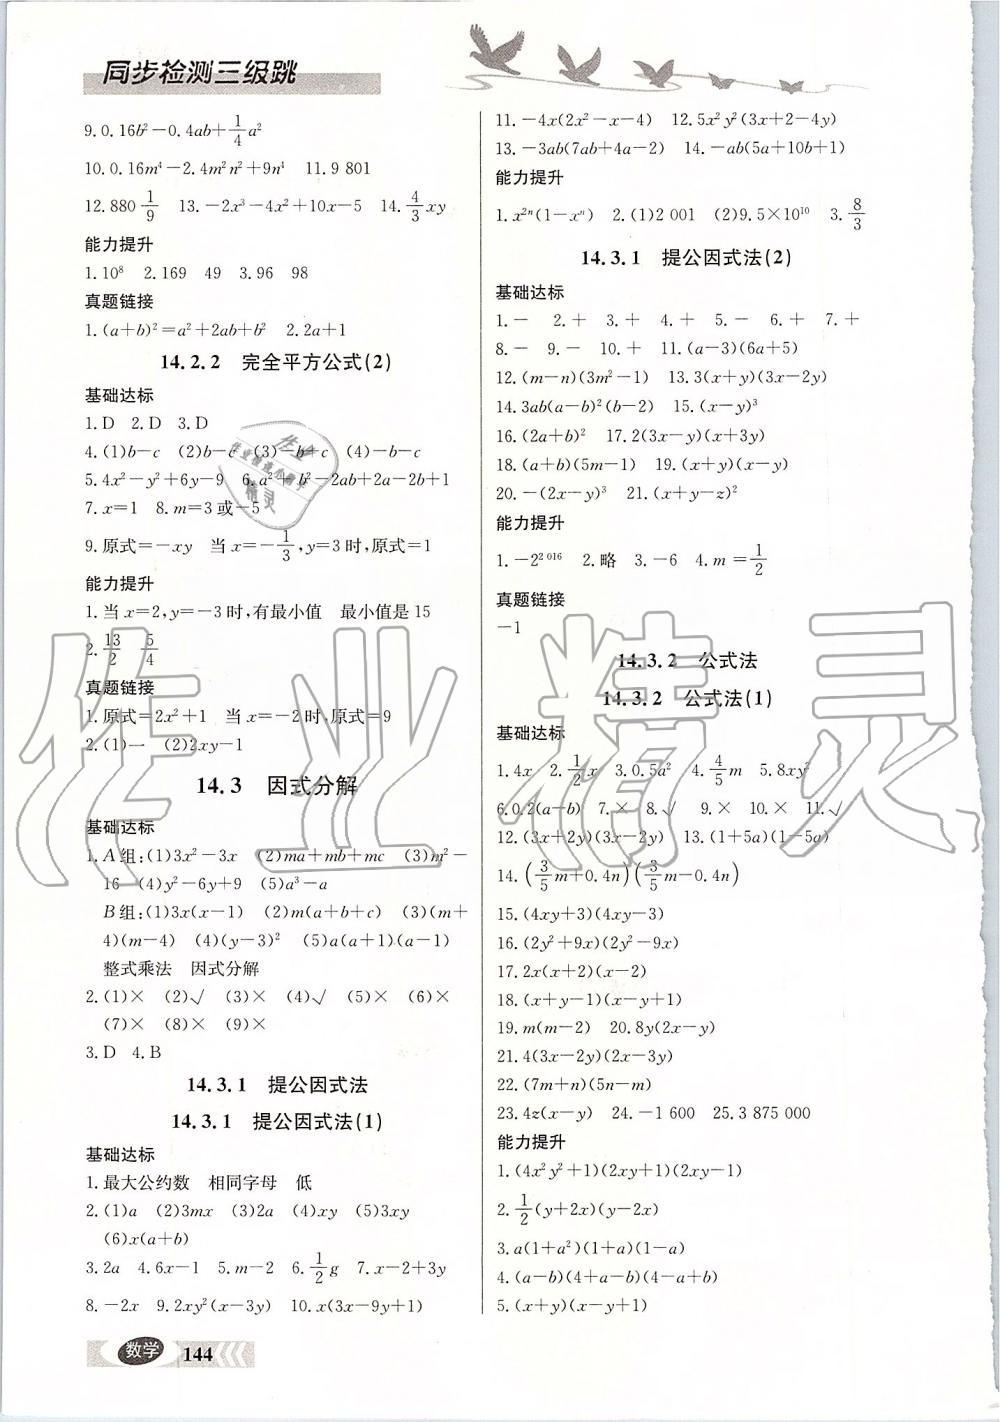 同步检测三级跳
9.0.16b²-0.4ab+1/4a²
10.0.16m⁴-2.4m²n²+9n⁴ 11.9 801
12.880 1/9 13.-2x³-4x²+10x-5 14.4/3xy
能力提升
1.10⁸ 2.169 49 3.96 98
真题链接
1.(a+b)²=a²+2ab+b² 2.2a+1
14.2.2 完全平方公式(2)
基础达标
1.D 2.D 3.D
4.(1)b-c (2)b-c (3)-b-c (4)-b-c
5.4x²-y²+6y-9 6.a²+b²-2ab+2a-2b+1
7.x=1 8.m=3或-5
9.原式=-xy 当x=-1/3,y=3时,原式=1
能力提升
1.当x=2,y=-3时,有最小值 最小值是15
2.13/2 5/4
真题链接
1.原式=2x²+1 当x=-2时,原式=9
2.(1)一 (2)2xy-1
14.3 因式分解
基础达标
1.A组:(1)3x²-3x (2)ma+mb+mc (3)m²-
16 (4)y²-6y+9 (5)a³-a
B组:(1)3x(x-1) (2)m(a+b+c) (3)(m+
4)(m-4) (4)(y-3)² (5)a(a+1)(a-1)
整式乘法 因式分解
2.(1)× (2)√ (3)× (4)√ (5)× (6)×
(7)× (8)× (9)×
3.D 4.B
14.3.1 提公因式法
14.3.1 提公因式法(1)
基础达标
1.最大公约数 相同字母 低
2.(1)a (2)3mx (3)2a (4)xy (5)3xy
(6)x(a+b)
3.2a 4.6x-1 5.m-2 6.1/2g 7.x-2+3y
8.-2x 9.2xy²(x-3y) 10.x(3x-9y+1)
11.-4x(2x²-x-4) 12.5x²y²(3x+2-4y)
13.-3ab(7ab+4a-2) 14.-ab(5a+10b+1)
能力提升
1.x²ⁿ(1-xⁿ) 2.(1)2 001 (2)9.5×10¹⁰ 3.8/3
14.3.1 提公因式法(2)
基础达标
1.- 2.+ 3.+ 4.+ 5.- 6.+ 7.+
8.- 9.- 10.+ 11.(a-3)(6a+5)
12.(m-n)(3m²-1) 13.3(x+y)(3x-2y)
14.3ab(a-b)²(b-2) 15.(x-y)³
16.(2a+b)² 17.2(3x-y)(x+3y)
18.(a+b)(5m-1) 19.(x+y)(x-y)
20.-(2x-y)³ 21.(x+y-z)²
能力提升
1.-2² ⁰¹⁶ 2.略 3.-6 4.m=1/2
真题链接
-1
14.3.2 公式法
14.3.2 公式法(1)
基础达标
1.4x 2.1/2x 3.0.5a² 4.4/5m 5.8xy²
6.0.2(a-b) 7.× 8.√ 9.× 10.× 11.√
12.(3x+2y)(3x-2y) 13.(1+5a)(1-5a)
14.(3/5m+0.4n)(3/5m-0.4n)
15.(4xy+3)(4xy-3)
16.(2y²+9x)(2y²-9x)
17.2x(x+2)(x-2)
18.(x+y-1)(x-y+1)
19.m(m-2) 20.8y(2x-y)
21.4(3x-2y)(2x-3y)
22.(7m+n)(5n-m)
23.4z(x-y) 24.-1 600 25.3 875 000
能力提升
1.(4x²y²+1)(2xy+1)(2xy-1)
2.1/2(y+2x)(y-2x)
3.a(1+a²)(1+a)(1-a)
4.(a-b)(4+a-b)(4-a+b)
5.(x+y)(x-y+1)
数学 144
作业精灵